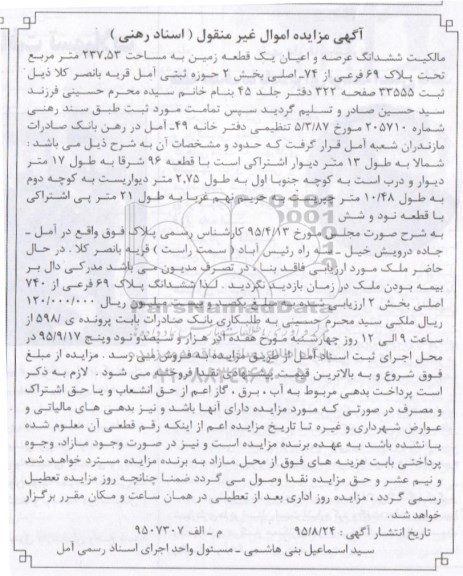 آگهی مزایده اموال غیر منقول ( اسناد رهنی )
مالکیت ششدانگ عرصه و اعیان یک قطعه زمین به مساحت ۲۳۷,۵۳ متر مربع
تحت پلاک ۶۹ فرعی از ۷۴ـ اصلی بخش ۲ حوزه ثبتی آمل قریه بانصر کلا ذیل
ثبت ۳۳۵۵۵ صفحه ۳۲۲ دفتر جلد ۴۵ بنام خانم سیده محرم حسینی فرزند
سید حسین صادر و تسلیم گردید سپس تمامت مورد ثبت طبق سند رهنی
شماره ۲۰۵۷۱۰ مورخ ۵/۳/۸۷ تنظیمی دفتر خانه ۴۹ـ آمل در رهن بانک صادرات
مازندران شعبه آمل قرار گرفت که حدود و مشخصات آن به شرح ذیل می باشد :
شمالا به طول ۱۳ متر دیوار اشتراکی است با قطعه ۹۶ شرقا به طول ۱۷ متر
دیوار و درب است به کوچه جنوبا اول به طول ۲,۷۵ متر دیواریست به کوچه دوم
به طول ۱۰/۴۸ متر به حریم نهم غربا به طول ۲۱ متر پی اشتراکی
با قطعه نود و شش
به شرح صورت مجلس مورخ ۹۵/۴/۱۳ کارشناس رسمی پلاک فوق واقع در آمل ـ
جاده درویش خیل ـ سه راه رئیس آباد ( سمت راست ) قریه بانصر کلا . در حال
حاضر ملک مورد ارزیابی فاقد بناء در تصرف مدیون می باشد مدرکی دال بر
بیمه بودن ملک در زمان بازدید نگردید . لذا ششدانگ پلاک ۶۹ فرعی از ۷۴۰
اصلی بخش ۲ ارزیابی شده به مبلغ یکصد و بیست میلیون ریال ۱۲۰/۰۰۰/۰۰۰
ریال ملکی سید محرم حسینی به طلبکاری بانک صادرات بابت پرونده ی ۵۹۸/ از
ساعت ۹ الی ۱۲ روز چهارشنبه مورخ هفده آذر هزار و سیصدو نود وپنج ۹۵/۹/۱۷ در
محل اجرای ثبت اسناد آمل از طریق مزایده به فروش می رسد . مزایده از مبلغ
فوق شروع و به بالاترین قیمت پیشنهادی نقدا فروخته می شود . لازم به ذکر
است پرداخت بدهی مربوط به آب ، برق ، گاز اعم از حق انشعاب و یا حق اشتراک
و مصرف در صورتی که مورد مزایده دارای آنها باشد و نیز بدهی های مالیاتی و
عوارض شهرداری و غیره تا تاریخ مزایده اعم از اینکه رقم قطعی آن معلوم شده
یا نشده باشد به عهده برنده مزایده است و نیز در صورت وجود مازاد، وجوه
پرداختی بابت هزینه های فوق از محل مازاد به برنده مزایده مسترد خواهد شد
و نیم عشر و حق مزایده نقدا وصول می گردد ضمنا چنانچه روز مزایده تعطیل
رسمی گردد ، مزایده روز اداری بعد از تعطیلی در همان ساعت و مکان مقرر برگزار
خواهد شد.
تاریخ انتشار آگهی : ۹۵/۸/۲۴ م ـ الف ۹۵۰۷۳۰۷
سید اسماعیل بنی هاشمی ـ مسئول واحد اجرای اسناد رسمی آمل